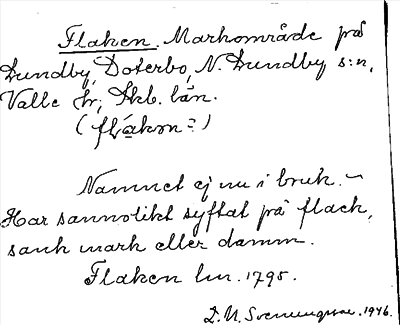 Flaken. Markområde på
Lundby, Doterbo, N. Lundby s:n,
Valle hr, Skb. län.
(flákɷn?)
Namnet ej nu i bruk. –
Har sannolikt syftat på flack,
sank mark eller damm.
Flaken lm. 1795.
1946.